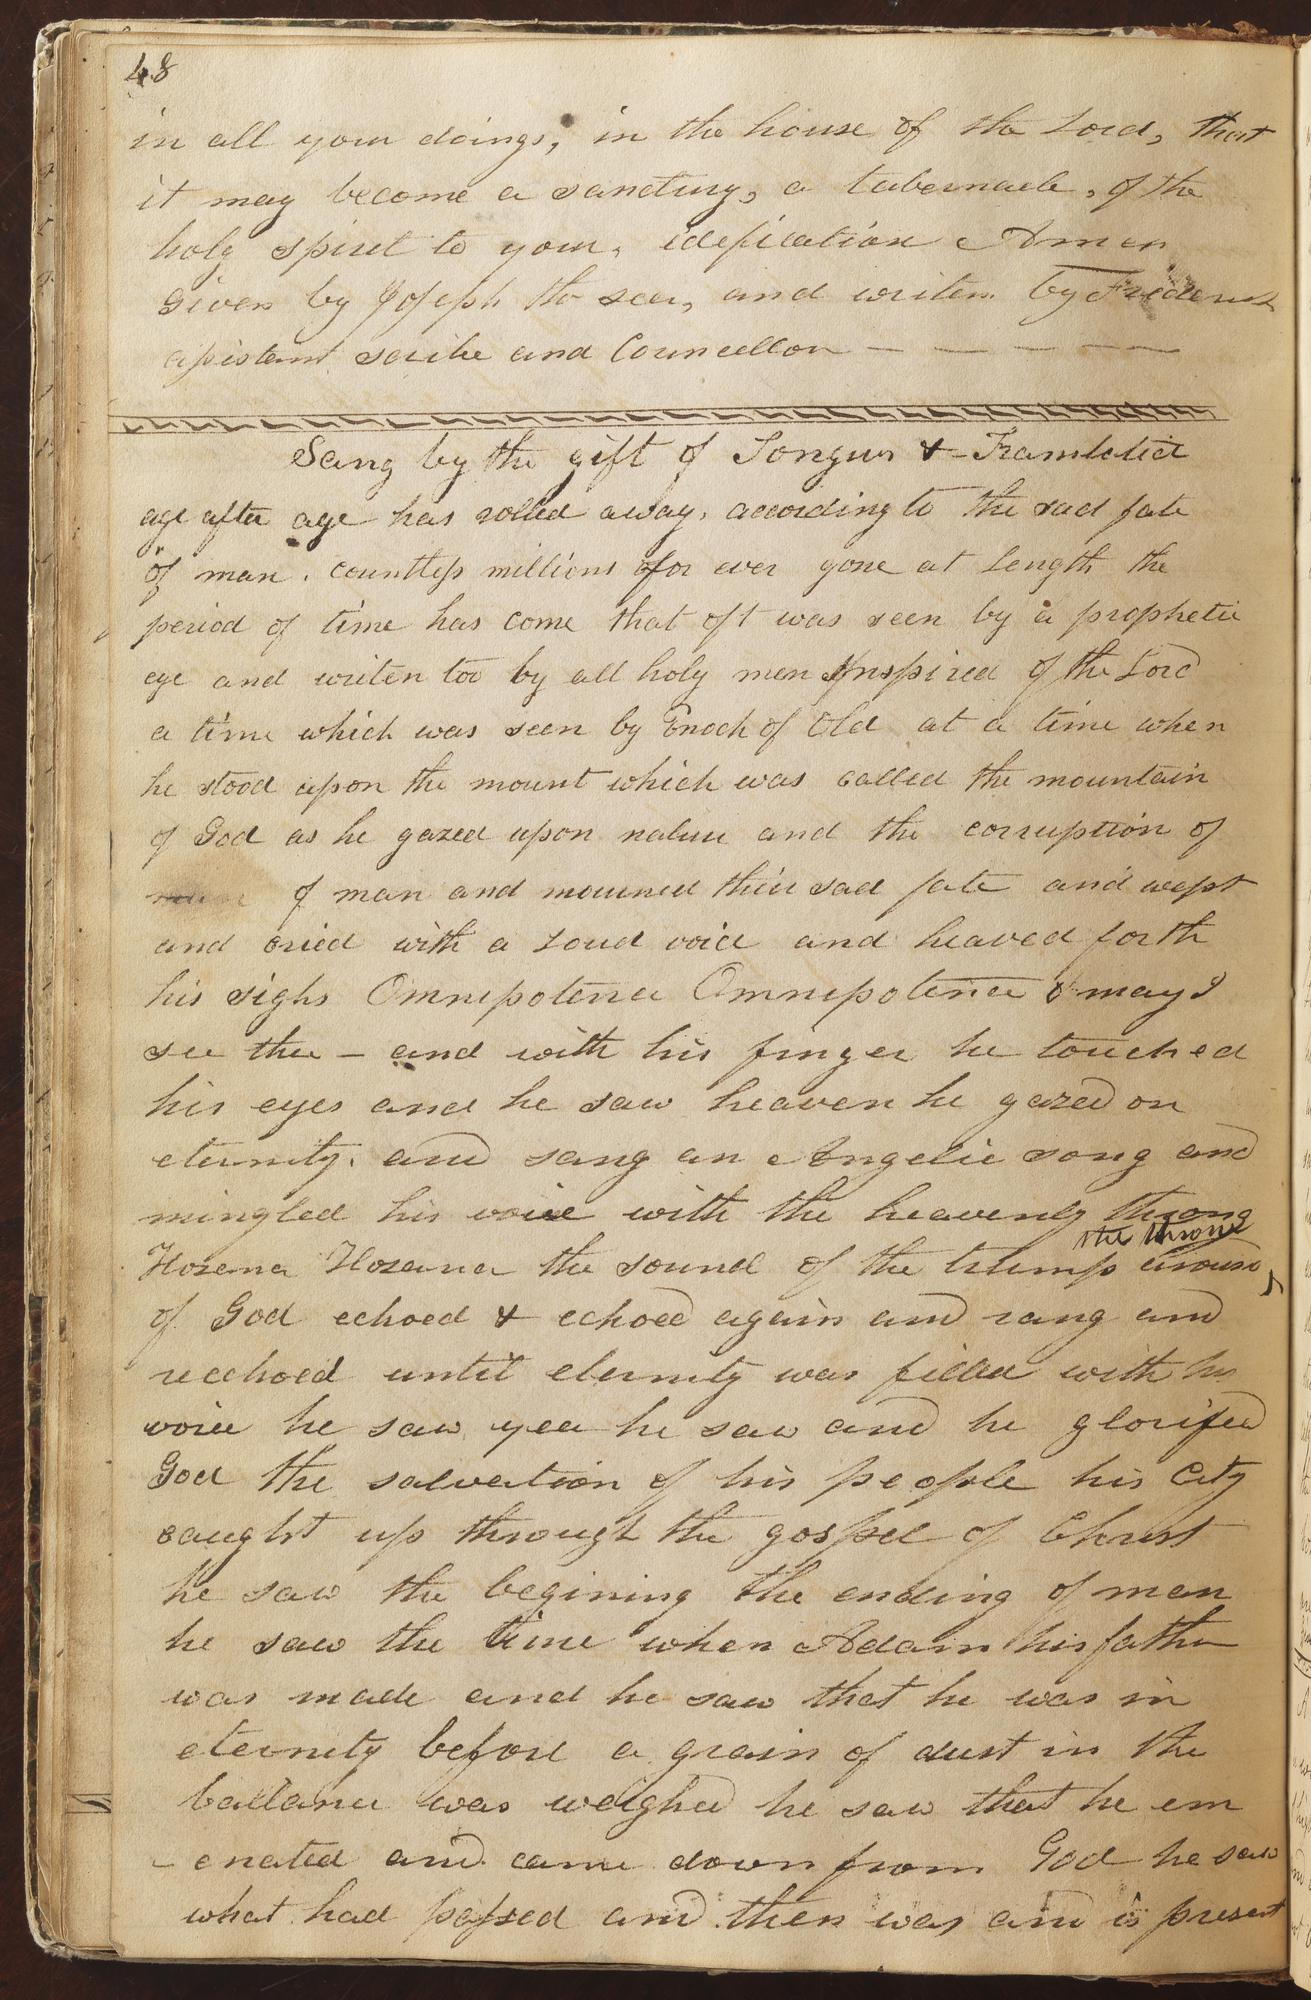 48
in all your doings, in the house of the Lord, that
it may become a sanctury, a tabernacle, of the
holy spirit to your, edefication Amen
Given by Joseph the seer, and writen by Frederick
assistant scribe and Councellor — — — — —
Sang by the gift of Tongues & Translated
age after age has rolled away, according to the sad fate
of man. countless millions for ever gone at length the
period of time has come that oft was seen by a prophetic
eye and writen too by all holy men Inspired of the Lord
a time which was seen by Enoch of Old at a time when
he stood upon the mount which was called the mountain
of God as he gazed upon nature and the corruption of
of man and mourned their sad fate and wept
and cried with a loud voice and heaved forth
his sighs Omnipotence Omnipotence O may I
see thee — and with his finger he touched
his eyes and he saw heaven he gazed on
eternity. and sang an Angelic song and
mingled his voice with the heavenly throng
the throne
Hosana Hosana the sound of the trump around
of God echoed & echoed again and rang and
reechoed until eternity was filled with his
voice he saw yea he saw and he glorified
God the salvation of his people his City
caught up through the gospel of Christ
he saw the begining the ending of men
he saw the time when Adam his father
was made and he saw that he was in
eternity before a grain of dust in the
ballance was weighed he saw that he em
-enated and came down from God he saw
what had passed and then was and is present